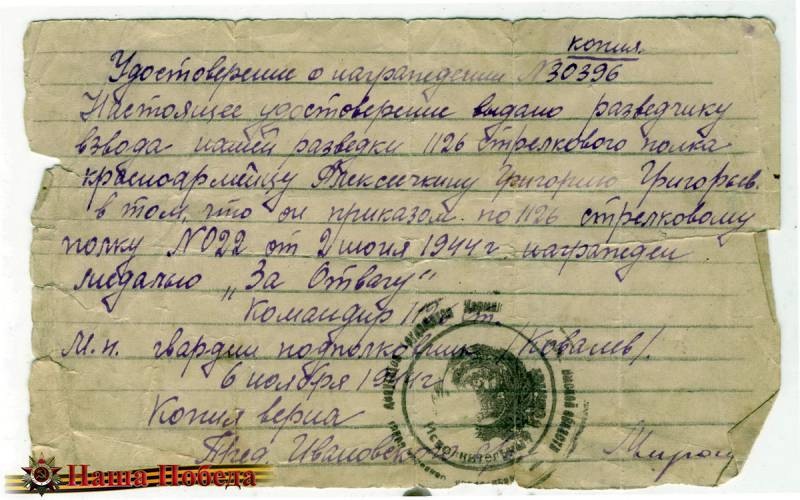 копия.
Удостоверение о награждении N30396
Настоящее удостоверение выдано разведчику
взвода пешей разведки 1126 стрелкового полка
красноармейцу Алексечкину Григорию Григорьев.
в том, что он приказом по 1126 стрелковому
полку N022 от 2 июня 1944 г награжден
медалью „За Отвагу"
Командир
М.п. гвардии подполковник /Ковалев/.
6 ноября 1944 г
Копия верна
Пред. Ивановского
Исполнительный
Наша Победа